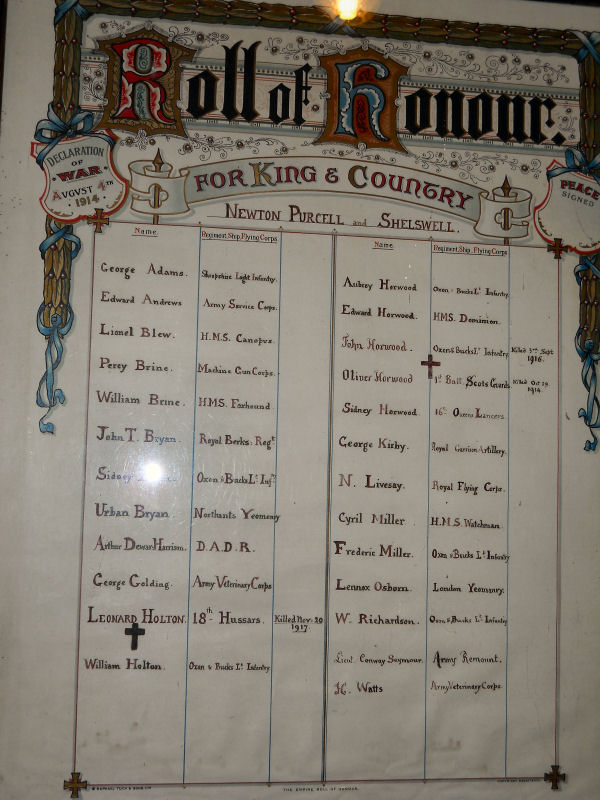 Roll of Honour.
DECLARATION
OF
WAR
AVGVST 4TH
1914.
PEACE
SIGNED
FOR KING & COUNTRY
NEWTON PURCELL and SHELSWELL.
Name Regiment, Ship, Flying Corps
George Adams. Shropshire Light Infantry.
Edward Andrews Army Service Corps.
Lionel Blew. H.M.S. Canopus.
Percy Brine. Machine Gun Corps.
William Brine. H.M.S. Foxhound.
John T. Bryan. Royal Berks: Regt
Sidney Oxon & Bucks Lt Infy.
Urban Bryan. Northants Yeomanry
Arthur Dewar-Harrison. D.A.D.R.
George Golding. Army Veterinary Corps
LEONARD HOLTON. 18th Hussars. Killed Nov. 20
1917.
William Holton. Oxon & Bucks Lt Infantry
Name Regiment, Ship, Flying Corps
Aubrey Horwood Oxon & Bucks Lt Infantry.
Edward Horwood. HMS. Dominion.
John Horwood. Oxon & Bucks Lt Infantry Killed 3rd Sept
1916.
Oliver Horwood 1st Batt. Scots Guards Killed Oct
1914.
Sidney Horwood 16th Queens Lancers.
George Kirby. Royal Garrison Artillery.
N. Livesay. Royal Flying Corps.
Cyril Miller H.M.S. Watchman.
Frederic Miller. Oxon & Bucks Lt Infantry
Lennox Osborn. London Yeomanry.
W. Richardson. Oxon & Bucks Lt Infantry
Lieut. Conway Seymour. Army Remount.
H. Watts Army Veterinary Corps.
© RAPHAEL TUCK & SONS LTD
THE EMPIRE ROLL OF HONOUR.